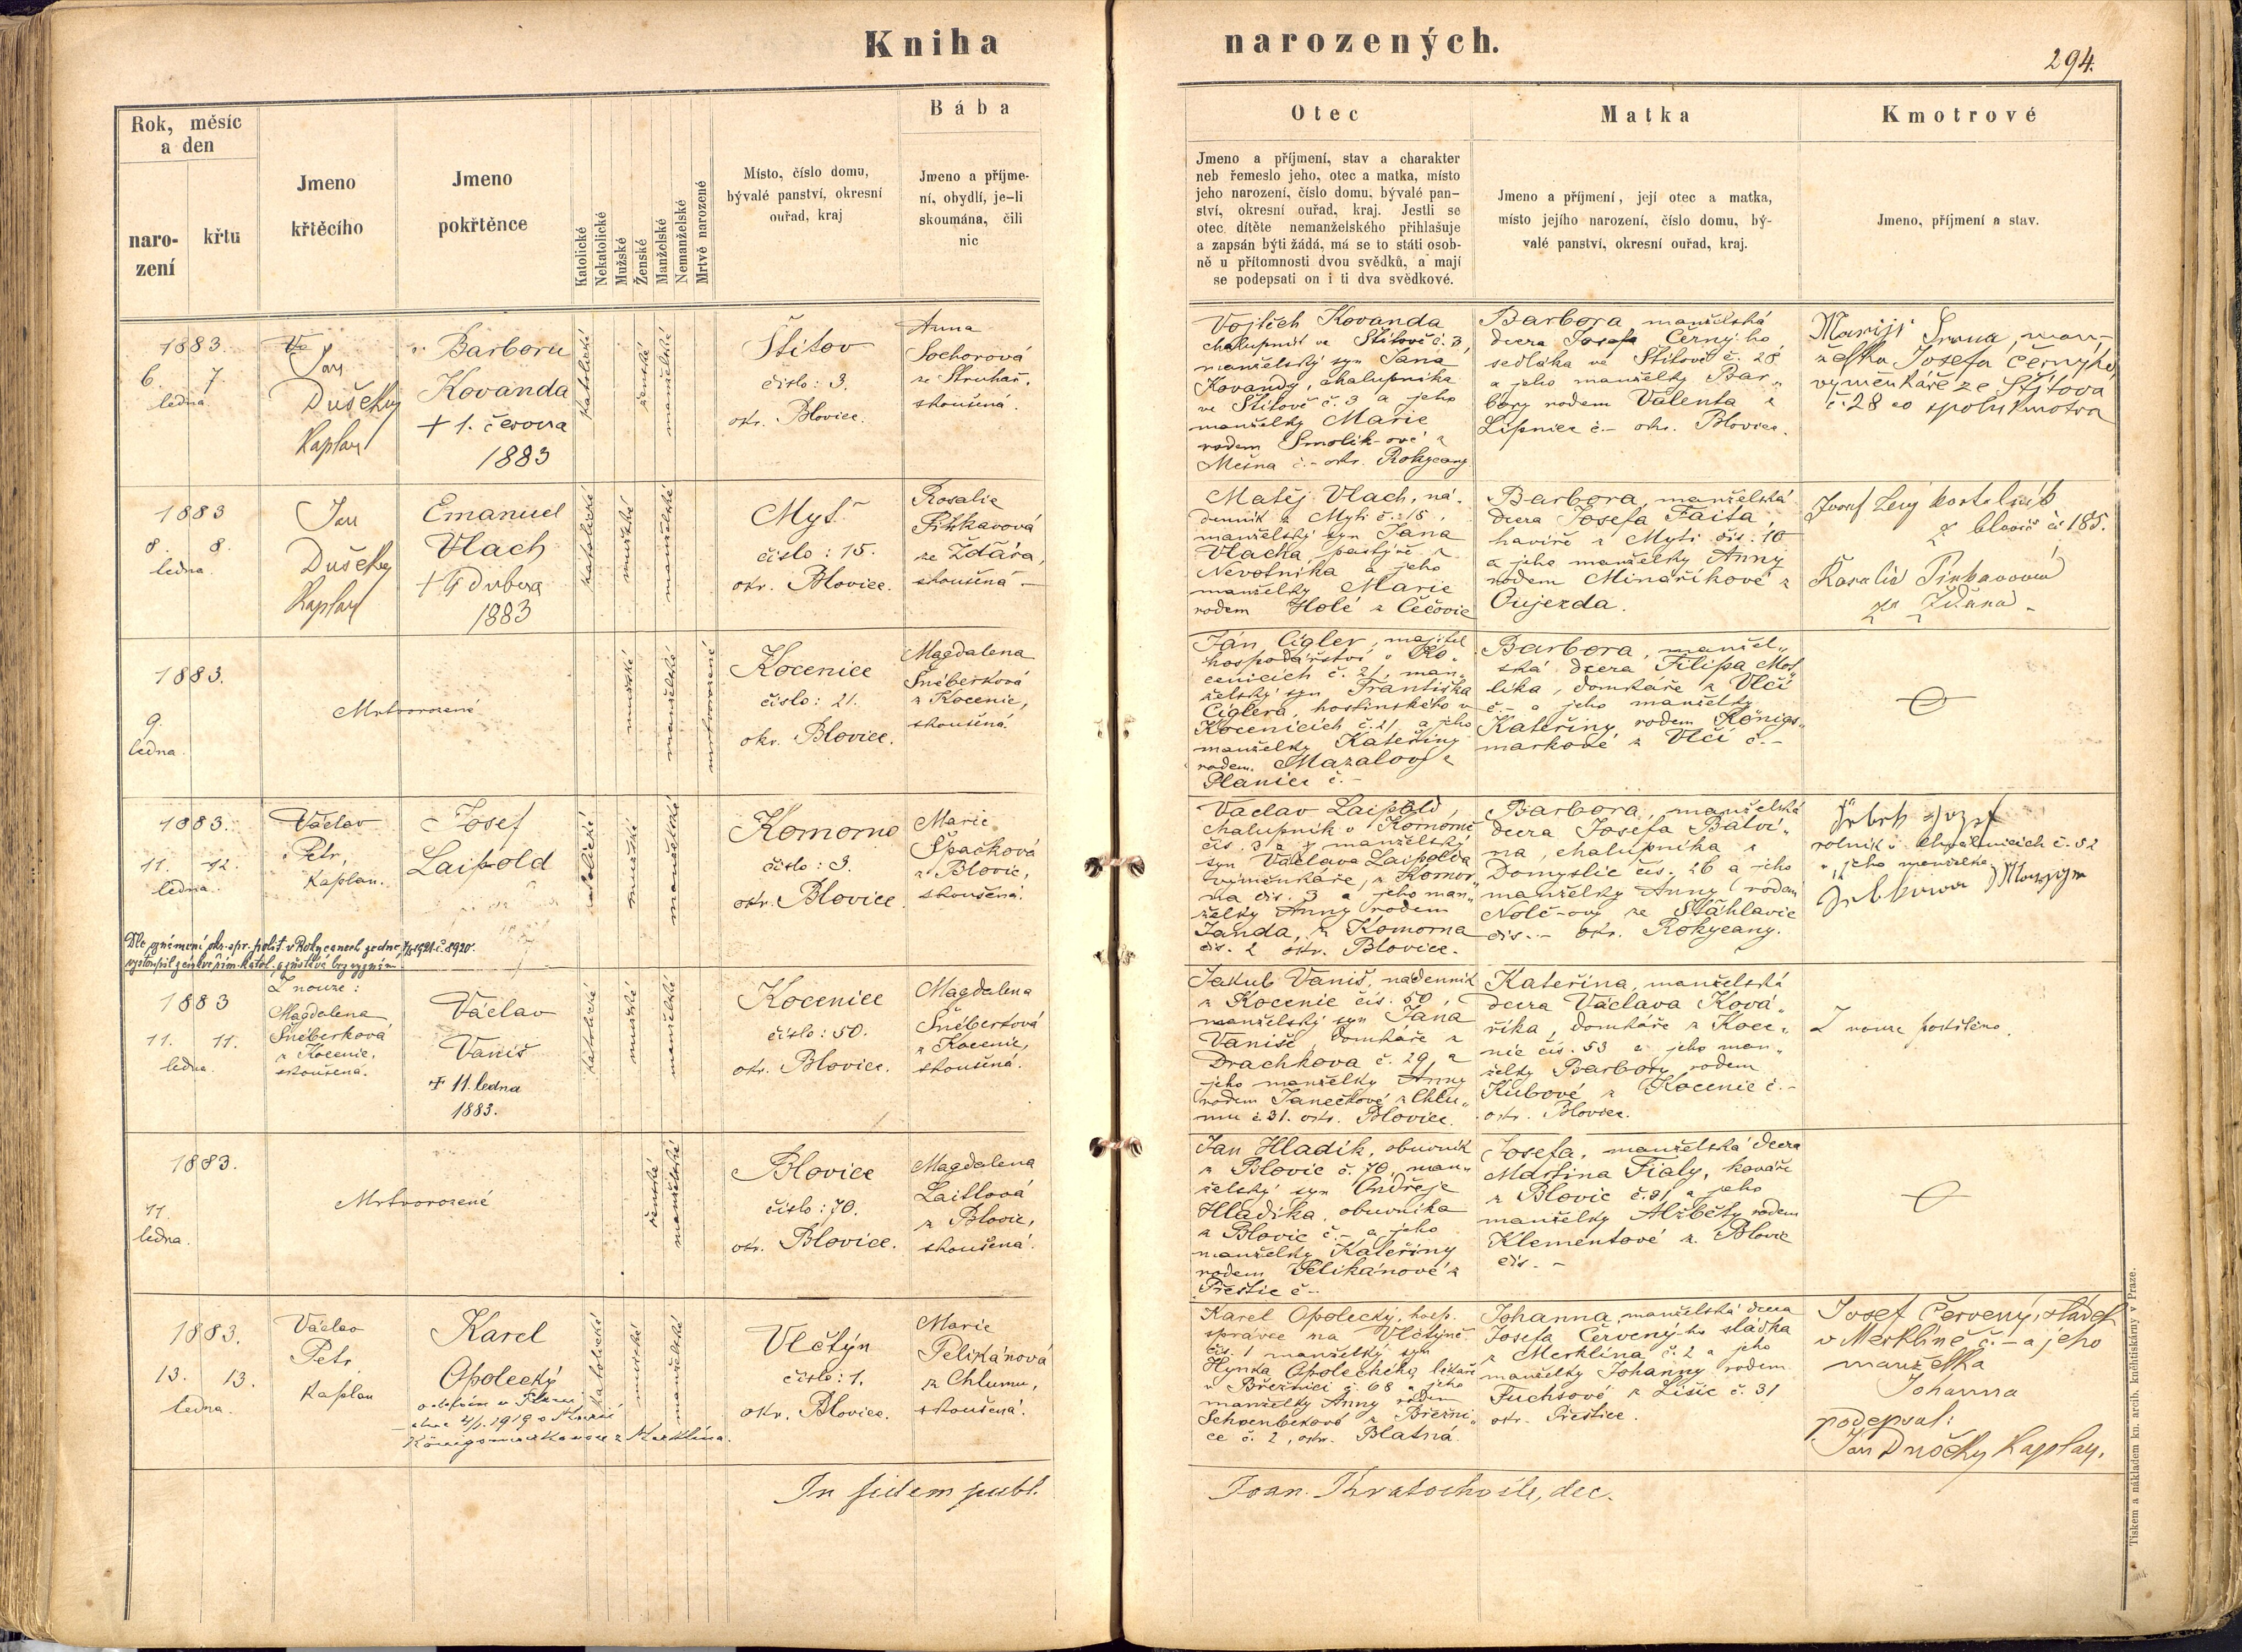 Kniha
narozených.
294.
Rok, měsíc
a den
naro-
zení
křtu
Jmeno
křtěcího
Jmeno
pokřtěnce
Katolické
Nekatolické
Mužské
Ženské
Manželské
Nemanželské
Mrtvě narozené
Místo, číslo domu,
bývalé panství, okresní
ouřad, kraj
Bába
Jmeno a příjme-
ní, obydlí, je-li
skoumána, čili
nic
Otec
Jmeno a příjmení, stav a charakter
neb řemeslo jeho, otec a matka, místo
jeho narození, číslo domu, bývalé pan-
ství, okresní ouřad, kraj. Jestli se
otec dítěte nemanželského přihlašuje
a zapsán býti žádá, má se to státi osob-
ně u přítomnosti dvou svědků, a mají
se podepsati on i ti dva svědkové.
Matka
Jmeno a příjmení, její otec a matka,
místo jejího narození, číslo domu, bý-
valé panství, okresní ouřad, kraj.
Kmotrové
Jmeno, příjmení a stav.
1883.
6. 7
ledna.
Jan
Dušeky
Kaplan
Barbora
Kovanda
+ 1. června
1883
katolické
ženské
manželské
Štitov
číslo: 3.
okr. Blovice.
Anna
Sochorová
ze Struhař.
skoušená.
Vojtěch Kovanda
chalupník ve Štitově č. 3,
manželský syn Jana
Kovandy, chalupníka
ve Štitově č. 3 a jeho
manželky Marie
rodem Smolík-ové z
Mešna č.- okr. Rokycany
Barbora manželská
dcera Josefa Černý-ho
sedláka ve Štitově č. 28,
a jeho manželky Bar„
bory rodem Valenta z
Lipnice č.- okr. Blovice.
žellka Josefa Černýho
výměnkáře ze Štítova
č. 28 co spolu kmotra
1883
8. 8.
ledna.
Jan
Dušeky
Kaplan
Emanuel
Vlach
1883
katolické
mužské
manželské
Myť
číslo: 15.
okr. Blovice.
Rosalie
ze Žďára,
skoušená
Matěj Vlach, ná„
denník z Myti č. 15,
manželský syn Jana
Vlacha pastýře z
Nevotníka a jeho
manželky Marie
rodem Holé z Čečovic
Barbora, manželská
dcera Josefa Faita,
havíře z Myti čís. 10
a jeho manželky Anny
rodem Minaříkové z
Oujezda.
č. 185.
1883.
9.
ledna.
Mrtvorozené
mužské
manželské
mrtvorozené
Kocenice
číslo: 21.
okr. Blovice.
Magdalena
Šnéberková
z Kocenic,
skoušená.
Ján Cígler, majitel
hospodářství v Ko„
cenicích č. 21, man„
želský syn Františka
Cíglera, hostinského v
Kocenicích č. 21, a jeho
manželky Kateřiny
rodem Mazalov z
Planice č.-
Barbora, manžel„
ská dcera Filipa Moť„
líka, domkáře z Vlčí
č.- a jeho manželky
Kateřiny rodem Königs„
markové z Vlčí č.-
1883.
11. 12.
ledna.
Václav
Petr,
Kaplan.
Josef
Laipold
katolické
mužské
manželské
Komorno
číslo: 3.
okr. Blovice.
Marie
Špačková
z Blovic,
skoušená.
Václav Laipold,
chalupník v Komorně
čís. 3 z manželský
syn Václava Laipolda
výměnkáře, z Komor„
na čís. 3 a jeho man„
želky Anny rodem
Janda, z Komorna
čís. 2 okr. Blovice.
Barbora, manželská
dcera Josefa Batví„
na, chalupníka z
Domyslic čís. 26 a jeho
manželky Anny rodem
Nolč-ovy ze Šťáhlavic
čís.- okr. Rokycany.
rolník v Chválenicích č. 52
a jeho manželka
1883
11. 11.
ledna.
Z nouze:
Magdalena
Šnéberková
z Kocenic,
skoušená.
Václav
Vaniš
+ 11. ledna
1883.
katolické
mužské
manželské
Kocenice
číslo: 50.
okr. Blovice.
Magdalena
Šnéberková
z Kocenic,
skoušená.
Jakub Vaniš, nádenník
z Kocenic čís. 50,
manželský syn Jana
Vaniše, domkáře z
Drachkova č. 29, a
jeho manželky Anny
rodem Janečkové z Chlu„
mu č. 31. okr. Blovice.
Kateřina, manželská
dcera Václava Ková„
říka, domkáře z Koce„
nic čís. 53 a jeho man„
želky Barbory rodem
Kubové z Kocenic č.-
okr. Blovice.
Z nouze pokřtěno.
1883.
11.
ledna.
Mrtvorozené
ženské
manželské
Blovice
číslo: 70.
okr. Blovice.
Magdalena
Laitlová
z Blovic,
skoušená.
Jan Hladík, obuvník
z Blovic č. 70, man„
želský syn Ondřeje
Hladíka, obuvníka
z Blovic č.- a jeho
manželky Kateřiny
rodem Pelikánové z
Přeštic č.-
Josefa, manželská dcera
Martina Fialy, kováře
z Blovic č. 91 a jeho
manželky Alžběty rodem
Klementové z Blovic
čís. -
1883.
13. 13.
ledna.
Václav
Petr
Kaplan
Karel
Opolecký
katolické
mužské
manželské
Vlčtýn
číslo: 1.
okr. Blovice.
Marie
Pelikánová
z Chlumu,
skoušená.
Karel Opolecký, hosp.
správce na Vlčtýně
čís. 1 manželský syn
Hynka Opoleckého, lékaře
v Březnici č. 68 a jeho
manželky Anny rodem
Schoenbekové z Březni„
ce č. 2, okr. Blatná
Johanna, manželská dcera
Josefa Červený-ho sládka
z Merklína č. 2 a jeho
manželky Johanny rodem
Fuchsové z Lišic č. 31
okr. Přeštice.
Josef Červený, sládek
v Merklíně č.- a jeho
manželka
Johanna
podepsal:
Jan Dušeky Kaplan.
In fidem publ.
Joan. Kratochvile, dec.
Tiskem a nákladem kn. arcib. knihtiskárny v Praze.